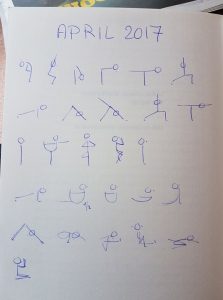 APRIL 2017